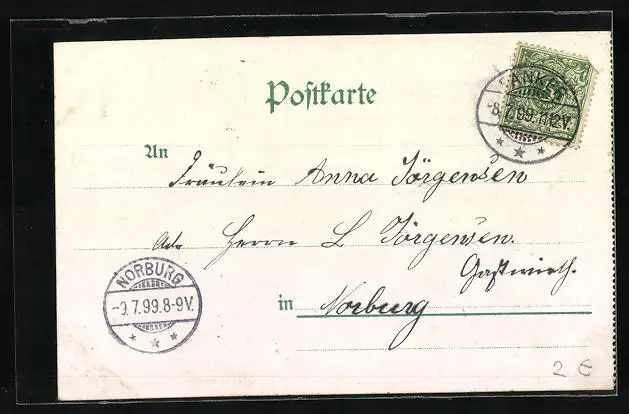 Postkarte
5
-8.7.99.11-12V.
An
Fräulein Anna Jörgensen
Adr. Herrn L Jörgensen.
Gastwirth.
in Norburg
NORBURG
-9.7.99.8-9V.
2 €